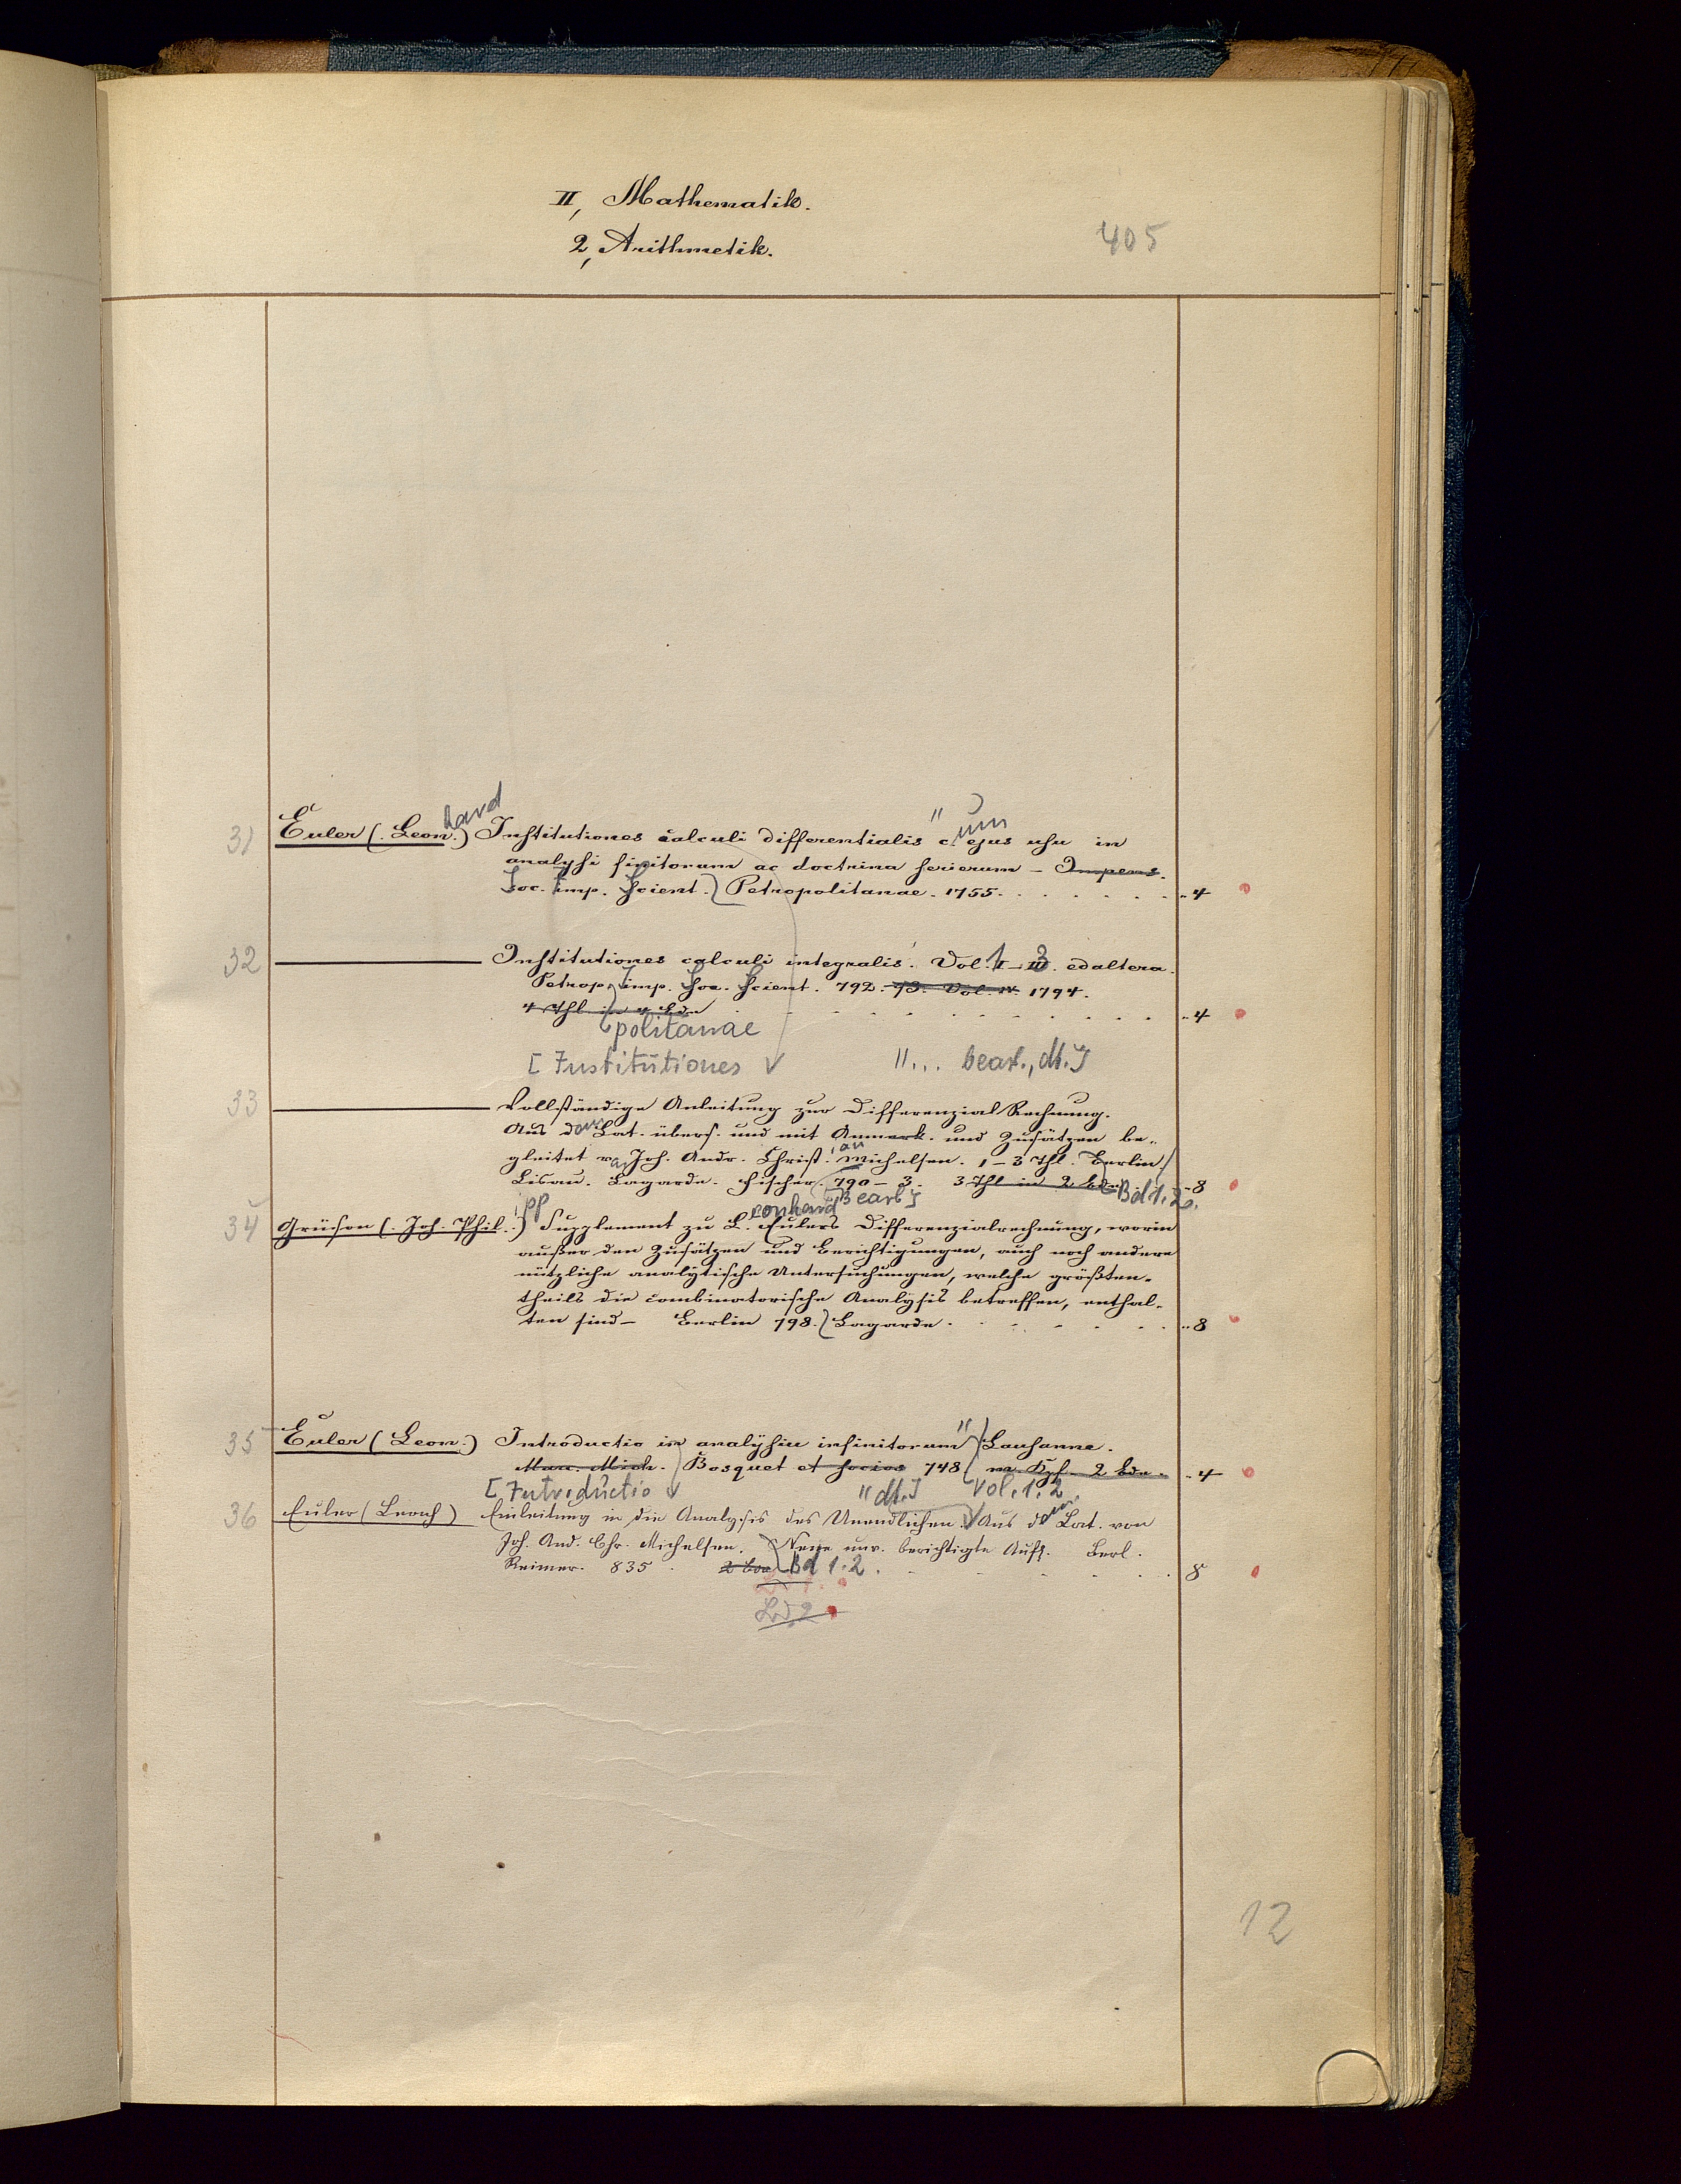 II, Mathematik.
2, Arithmetik.
405
31 Euler (Leon.hard) Institutiones calculi differentialis" c.um ejus usu in
analysi finitorum ac doctrina serierum – Impens.
Soc. Imp. Scient. Petropolitanae. 1755. 4
32 ——— Institutiones calculi integralis. Vol. I–III. 1 3 ed altera.
Petrop. imp. Soc. Scient. 792. 93. Vol. IV. 1794.
4 Thl in 4 Bdn 4
politanae
[Institutiones V "... bearb., dt.]
33 ——— Vollständige Anleitung zur Differenzial Rechnung.
Aus d. Lat. übers. und mit Anmerk. und Zusätzen be-
gleitet v. Joh. Andr. Christ.ian Michelsen. 1–3 Thl. Berlin
Lagarde. Fischer. 790–3. 3 Thl in 2 Bdn Bd 1.2. 8
[Bearb.]
34 Grüson (Joh. Phil.ipp) Supplement zu L.eonhard Eulers Differenzialrechnung, worin
außer den Zusätzen und Berichtigungen, auch noch andere
nützliche analytische Untersuchungen, welche größten-
theils die combinatorische Analysis betreffen, enthal-
ten sind – Berlin 798. Lagarde. 8
35 Euler (Leon.) Introductio in analysin infinitorum" Lausanne.
Marc. Mich. Bosquet et socios 748 m. Kpf. 2 Bde. 4
[Introductio V "dt.] Vol. 1.2
36 Euler (Leonh) Einleitung in die Analysis des Unendlichen. V Aus d Lat. von
Joh. And. Chr. Michelsen. Neue unv. berichtigte Aufl. Berl.
Reimer. 835. 2 Bde Bd 1.2. 8
Bd 2
12